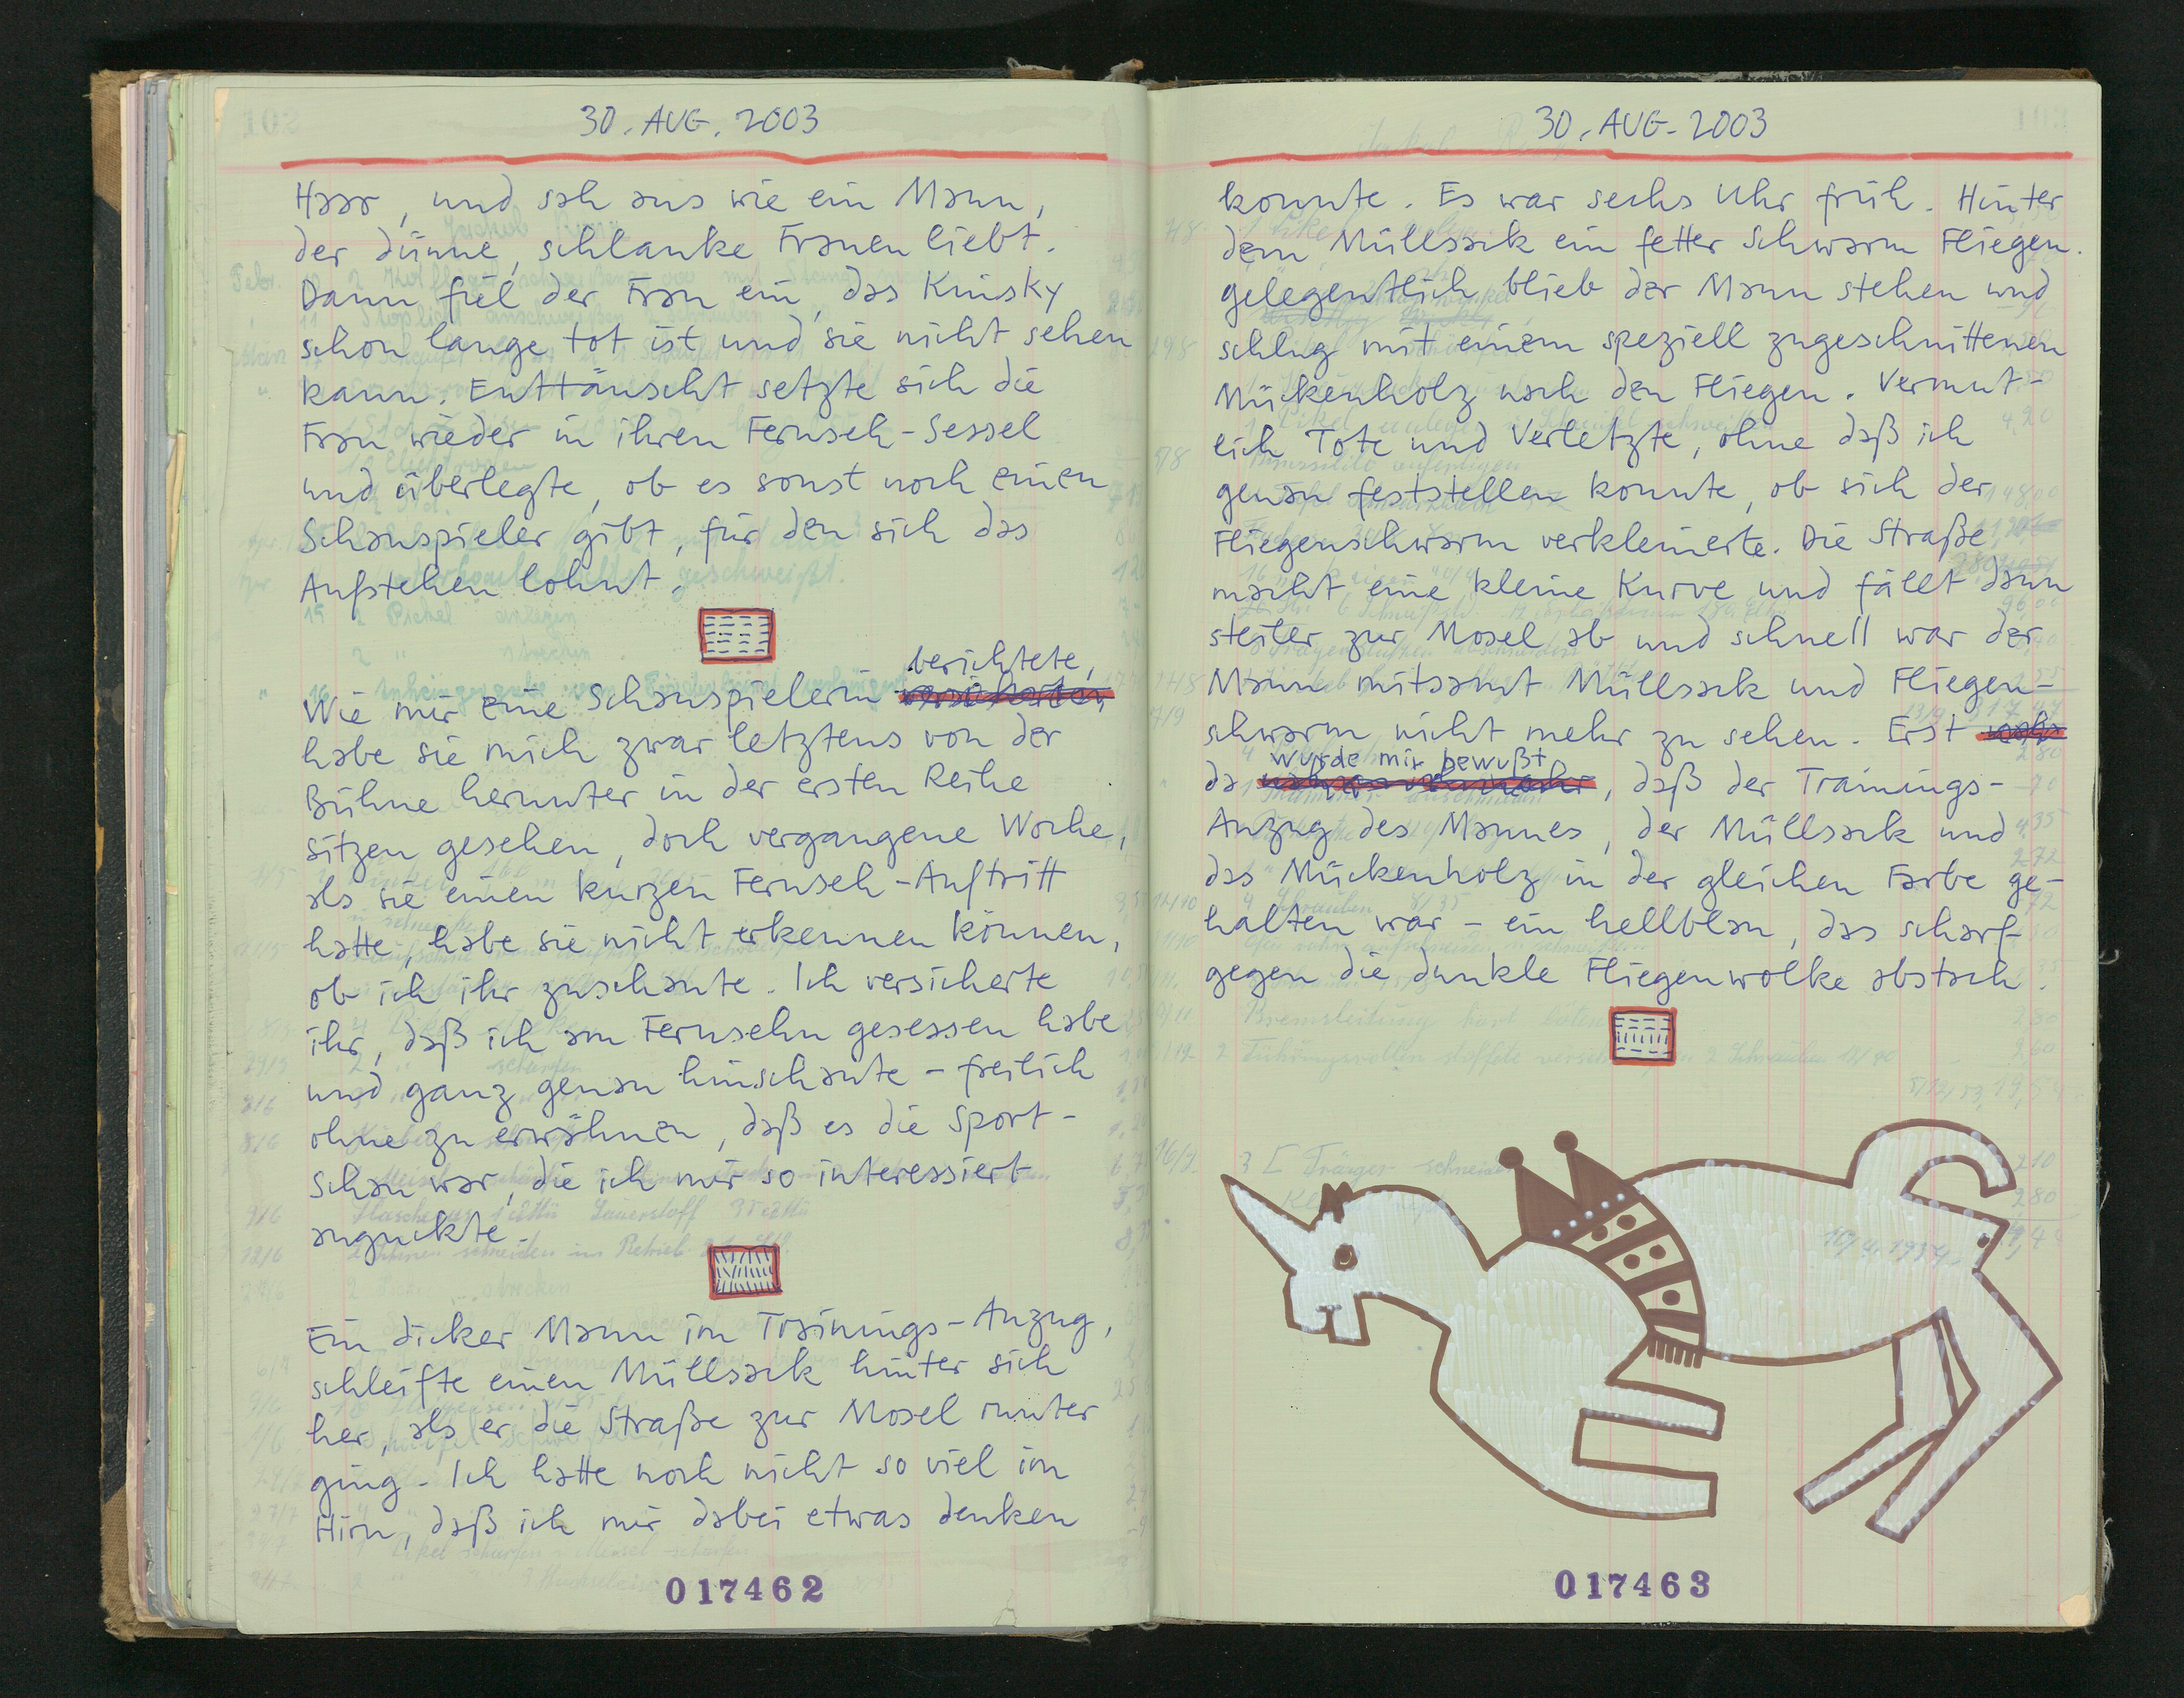 30. AUG. 2003
Haar, und sah aus wie ein Mann,
der dünne, schlanke Frauen liebt.
Dann fiel der Frau ein, das Kinsky
schon lange tot ist und sie nicht sehen
kann. Enttäuscht setzte sich die
Frau wieder in ihren Fernseh-Sessel
und überlegte, ob es sonst noch einen
Schauspieler gibt, für den sich das
Aufstehen lohnt.
berichtete,
Wie mir eine Schauspielerin
habe sie mich zwar letztens von der
Bühne herunter in der ersten Reihe
sitzen gesehen, doch vergangene Woche,
als sie einen kurzen Fernseh-Auftritt
hatte, habe sie nicht erkennen können,
ob ich ihr zuschaute. Ich versicherte
ihr, daß ich am Fernsehn gesessen habe
und ganz genau hinschaute - freilich
ohne zu erwähnen, daß es die Sport-
schau war, die ich mir so interessiert
anguckte.
Ein dicker Mann im Trainings-Anzug,
schleifte einen Müllsack hinter sich
her, als er die Straße zur Mosel runter
ging. Ich hatte noch nicht so viel im
Hirn, daß ich mir dabei etwas denken
017462
30. AUG. 2003
konnte. Es war sechs Uhr früh. Hinter
dem Müllsack ein fetter Schwarm Fliegen.
gelegentlich blieb der Mann stehen und
schlug mit einem speziell zugeschnittenen
Mückenholz nach den Fliegen. Vermut-
lich Tote und Verletzte, ohne daß ich
genau feststellen konnte, ob sich der
Fliegenschwarm verkleinerte. Die Straße
macht eine kleine Kurve und fällt dann
steiler zur Mosel ab und schnell war der
Mann mitsamt Müllsack und Fliegen-
schwarm nicht mehr zu sehen. Erst
wurde mir bewußt
da, daß der Trainings-
Anzug des Mannes, der Müllsack und
das Mückenholz in der gleichen Farbe ge-
halten war - ein hellblau, das scharf
gegen die dunkle Fliegenwolke abstach.
017463